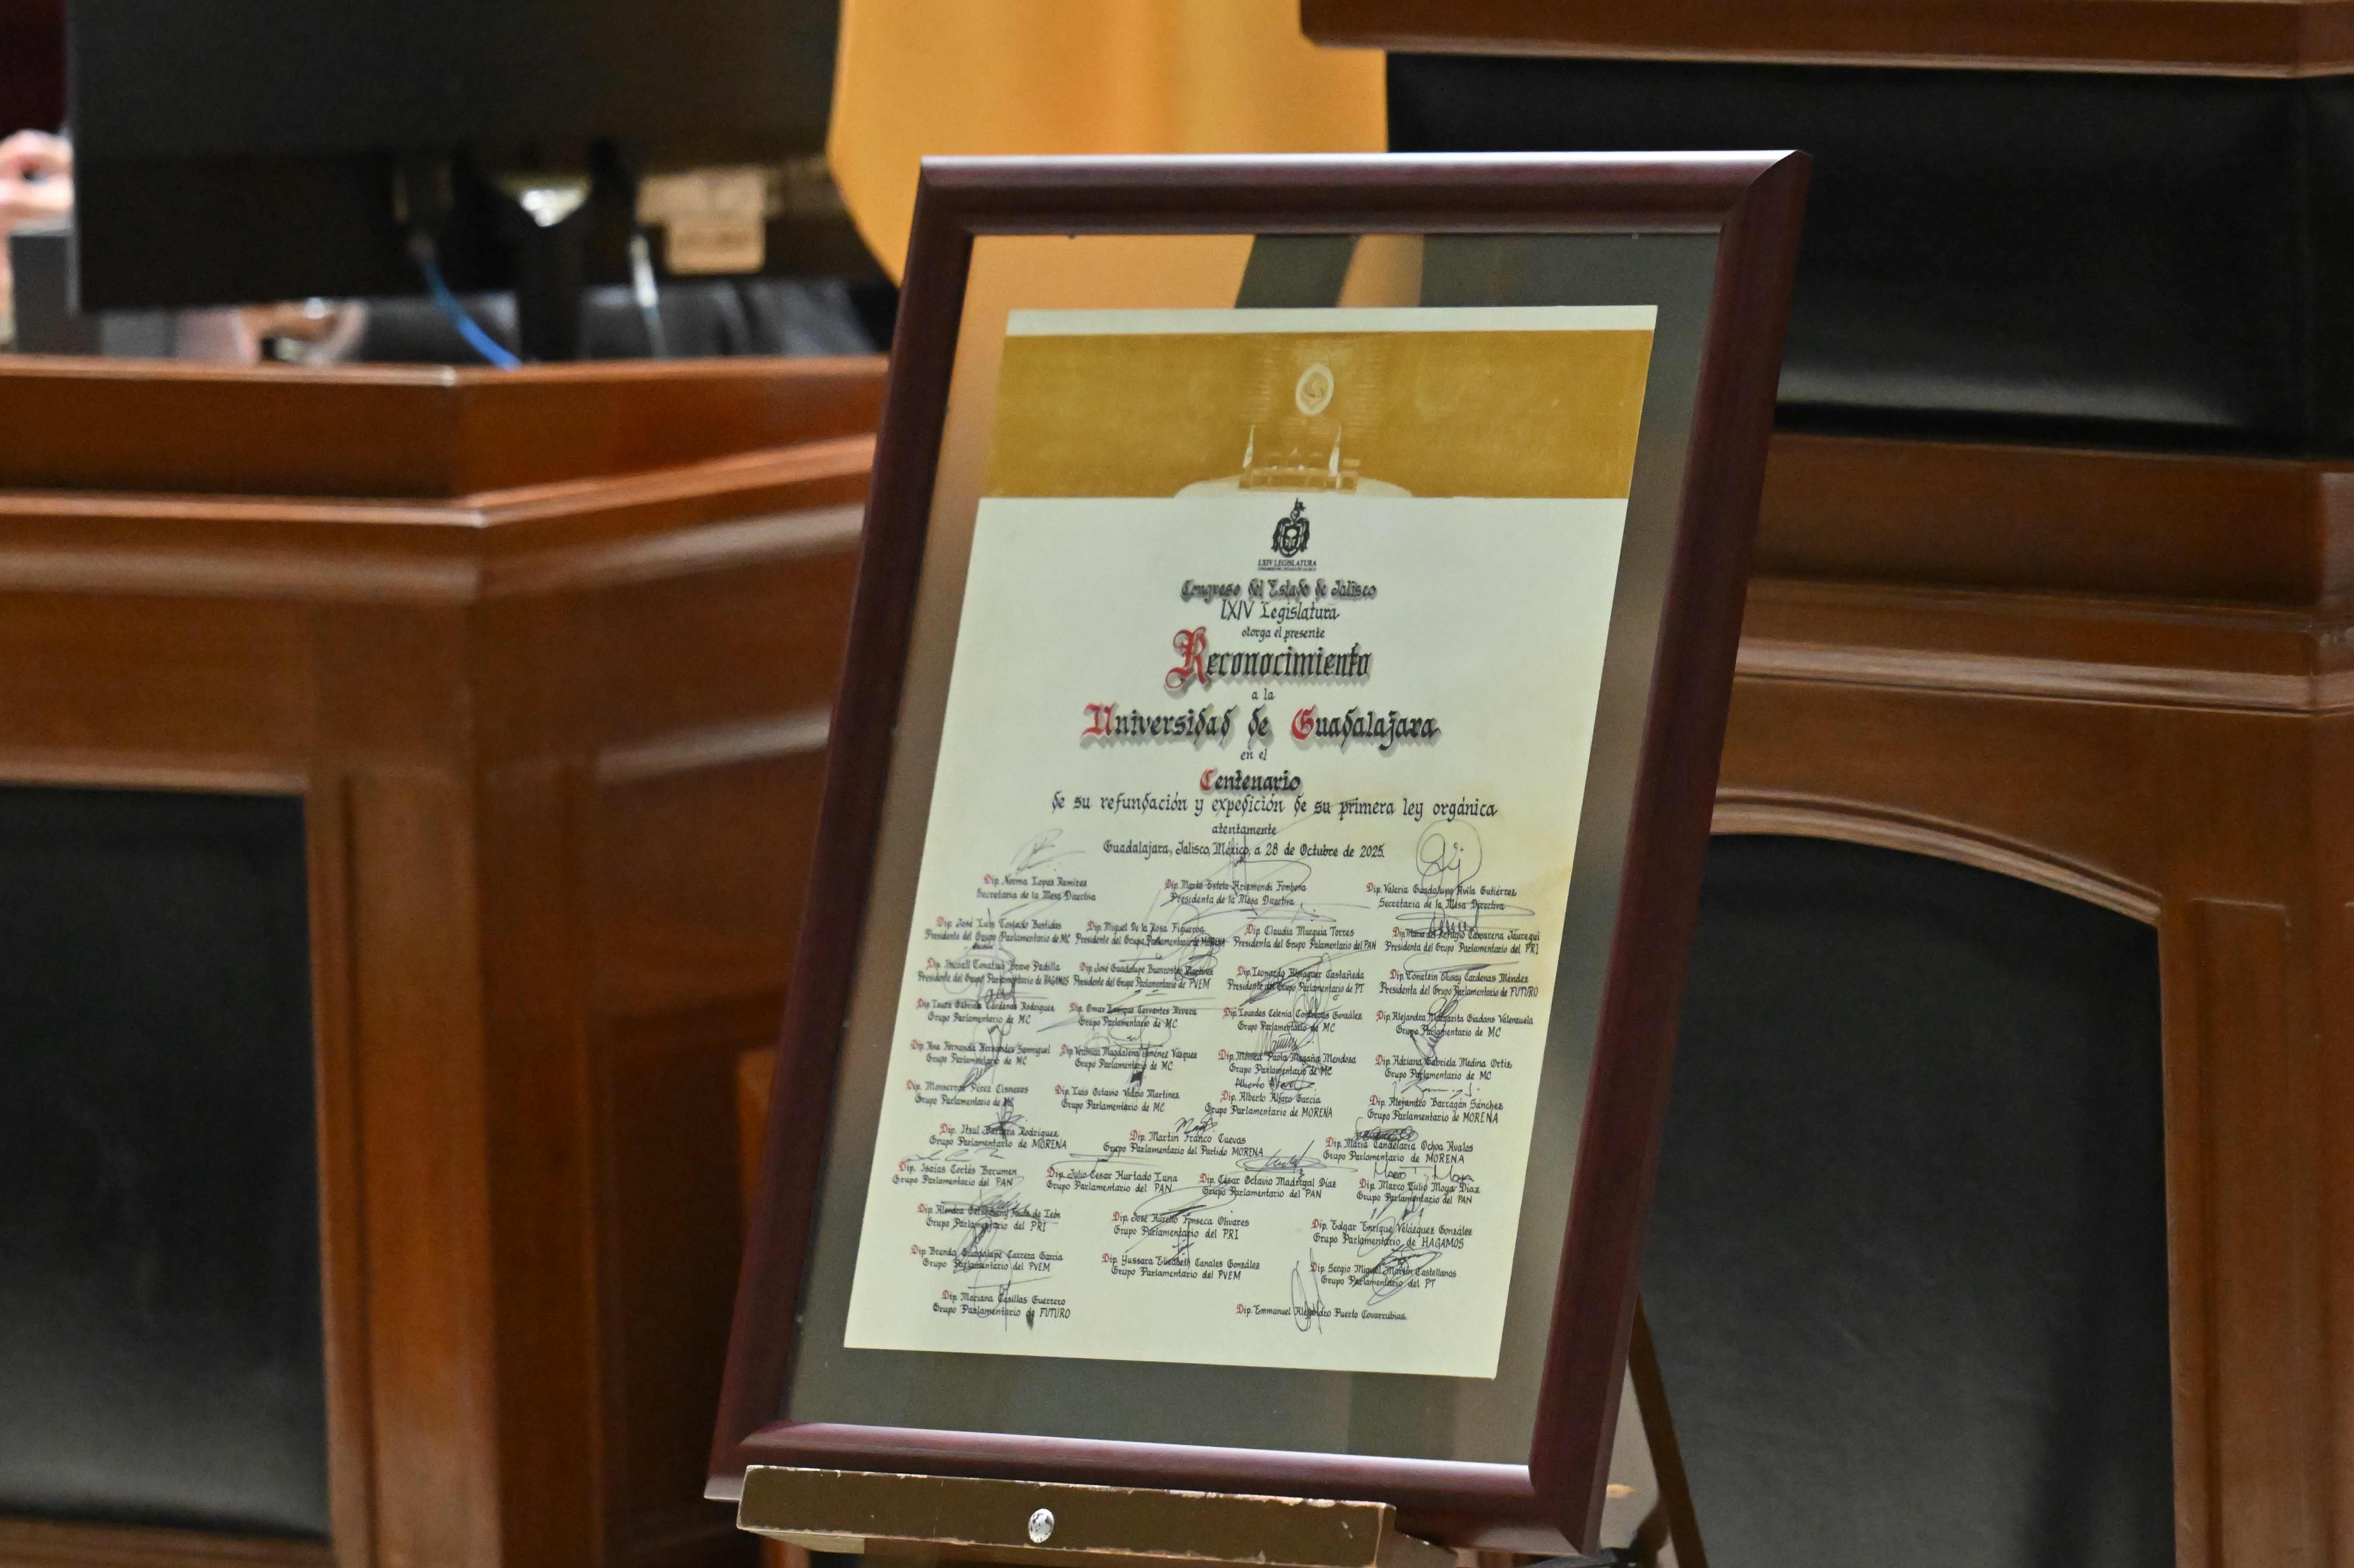 LXIV LEGISLATURA
Congreso del Estado de Jalisco
LXIV Legislatura
otorga el presente
Reconocimiento
a la
Universidad de Guadalajara
en el
Centenario
de su refundación y expedición de su primera ley orgánica
atentamente
Guadalajara, Jalisco, México, a 28 de Octubre de 2025.
Dip. Norma López Ramírez Dip. María Estela Arizmendi Fombona Dip. Valeria Guadalupe Ávila Gutiérrez
Secretaria de la Mesa Directiva Presidenta de la Mesa Directiva Secretaria de la Mesa Directiva
Dip. José Luis Tostado Bastidas Dip. Miguel De la Rosa Figueroa Dip. Claudia Murguía Torres Dip. Jáuregui
Presidente del Grupo Parlamentario de MC Presidente del Grupo Parlamentario de MORENA Presidenta del Grupo Palamentario del PAN Presidenta del Grupo Parlamentario del PRI
Dip. Tonatiuh Bravo Padilla Dip. José Guadalupe Buenrostro Martínez Dip. Leonardo Almaguer Castañeda Dip. Tonatzin Cárdenas Méndez
Presidente del Grupo Parlamentario de HAGAMOS Presidente del Grupo Parlamentario de PVEM Presidente del Grupo Parlamentario de PT Presidenta del Grupo Parlamentario de FUTURO
Dip. Laura Gabriela Cárdenas Rodríguez Dip. Omar Enrique Cervantes Rivera Dip. Lourdes Celenia Contreras González Dip. Alejandra Margarita Giadans Valenzuela
Grupo Parlamentario de MC Grupo Parlamentario de MC Grupo Parlamentario de MC Grupo Parlamentario de MC
Dip. Ana Fernanda Hernández Sanmiguel Dip. Verónica Magdalena Jiménez Vázquez Dip. Mónica Paola Magaña Mendoza Dip. Adriana Gabriela Medina Ortiz
Grupo Parlamentario de MC Grupo Parlamentario de MC Grupo Parlamentario de MC Grupo Parlamentario de MC
Dip. Montserrat Pérez Cisneros Dip. Luis Octavio Vidrio Martínez Dip. Alberto Alfaro García Dip. Alejandro Barragán Sánchez
Grupo Parlamentario de MC Grupo Parlamentario de MC Grupo Parlamentario de MORENA Grupo Parlamentario de MORENA
Dip. Itzul Barrera Rodríguez Dip. Martín Franco Cuevas Dip. María Candelaria Ochoa Avalos
Grupo Parlamentario de MORENA Grupo Parlamentario del Partido MORENA Grupo Parlamentario de MORENA
Dip. Isaías Cortés Berumen Dip. Julio César Hurtado Luna Dip. César Octavio Madrigal Díaz Dip. Marco Tulio Moya Díaz
Grupo Parlamentario del PAN Grupo Parlamentario del PAN Grupo Parlamentario del PAN Grupo Parlamentario del PAN
Dip. de León Dip. José Aurelio Fonseca Olivares Dip. Edgar Enrique Velázquez González
Grupo Parlamentario del PRI Grupo Parlamentario del PRI Grupo Parlamentario de HAGAMOS
Dip. Brenda Guadalupe Carrera García Dip. Yussara Elizabeth Canales González Dip. Sergio Miguel Martín Castellanos
Grupo Parlamentario del PVEM Grupo Parlamentario del PVEM Grupo Parlamentario del PT
Dip. Mariana Casillas Guerrero Dip. Emmanuel Alejandro Puerto Covarrubias.
Grupo Parlamentario de FUTURO